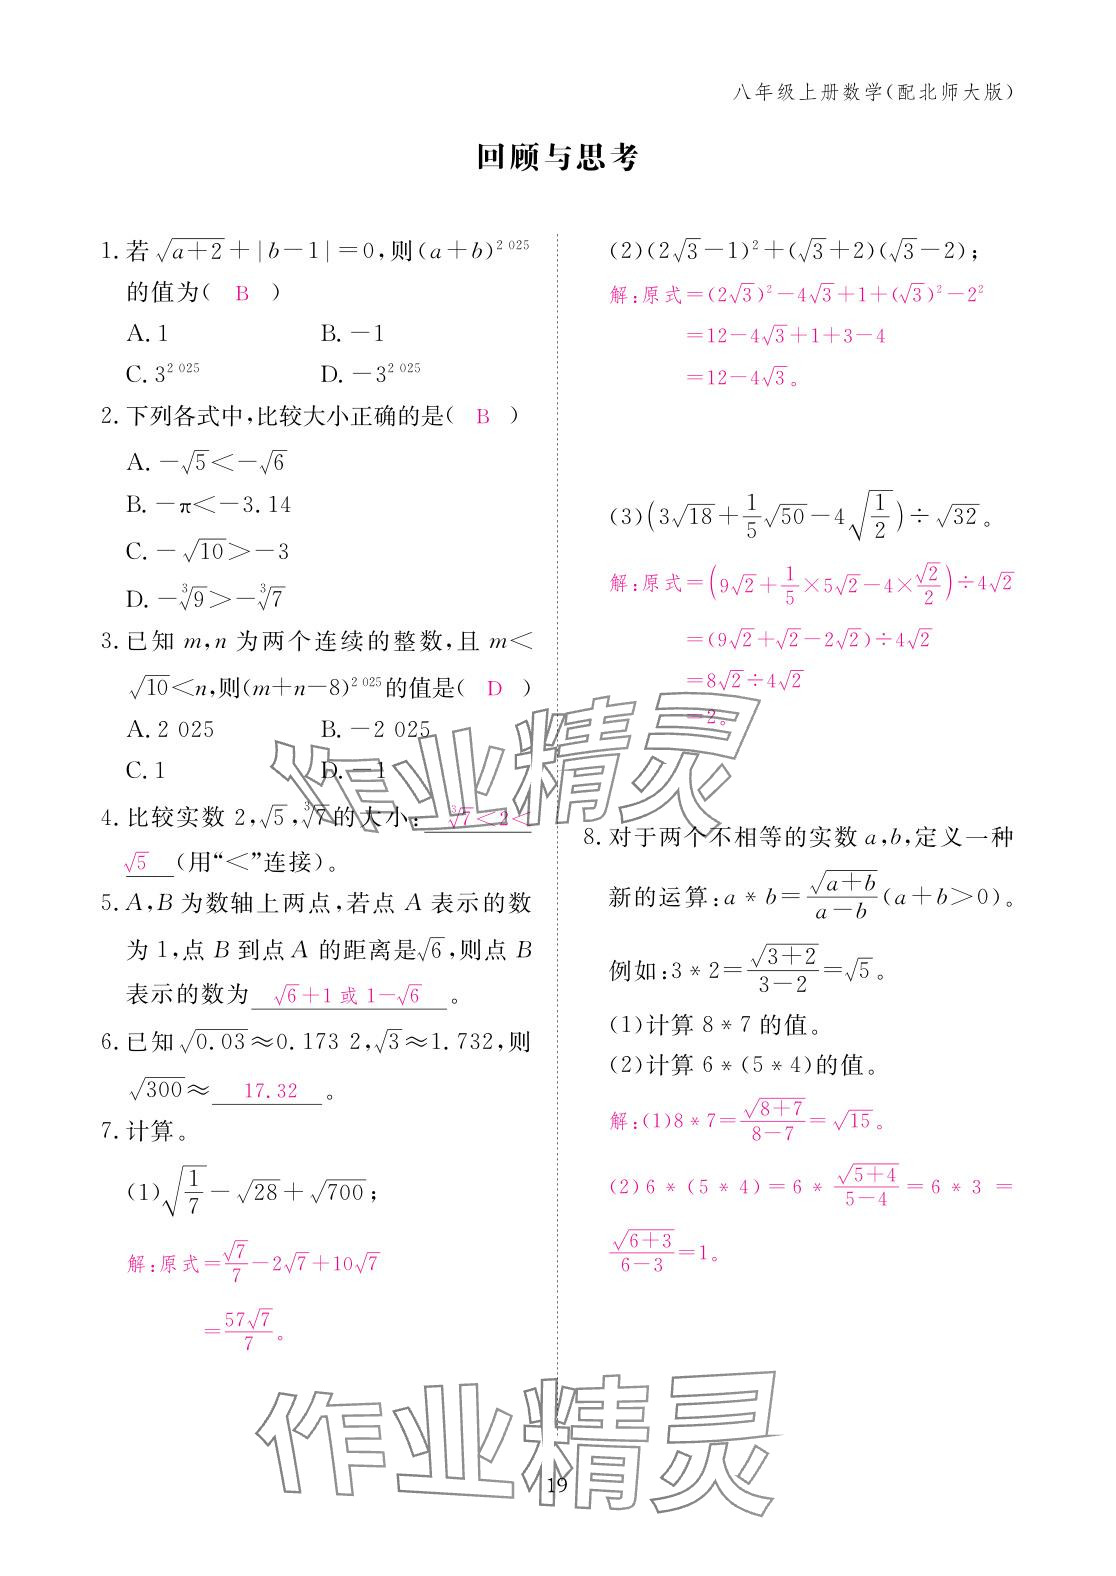 八年级上册数学(配北师大版)
回顾与思考
1. 若√(a+2)+|b-1|=0,则(a+b)^2 025
的值为( B )
A. 1 B. -1
C. 3^2 025 D. -3^2 025
2. 下列各式中,比较大小正确的是( B )
A. -√5<-√6
B. -π<-3.14
C. -√10>-3
D. -∛9>-∛7
3. 已知 m,n 为两个连续的整数,且 m<
√10<n,则(m+n-8)^2 025的值是( D )
A. 2 025 B. -2 025
C. 1 D. -1
4. 比较实数 2,√5,∛7的大小: ∛7<2<
√5 (用“<”连接)。
5. A,B 为数轴上两点,若点 A 表示的数
为 1,点 B 到点 A 的距离是√6,则点 B
表示的数为 √6+1 或 1-√6 。
6. 已知√0.03≈0.173 2,√3≈1.732,则
√300≈ 17.32 。
7. 计算。
(1)√(1/7)-√28+√700;
解:原式=√7/7-2√7+10√7
=57√7/7。
(2)(2√3-1)²+(√3+2)(√3-2);
解:原式=(2√3)²-4√3+1+(√3)²-2²
=12-4√3+1+3-4
=12-4√3。
(3)(3√18+1/5√50-4√(1/2))÷√32。
解:原式=(9√2+1/5×5√2-4×√2/2)÷4√2
=(9√2+√2-2√2)÷4√2
=8√2÷4√2
=2。
8. 对于两个不相等的实数 a,b,定义一种
新的运算:a*b=√(a+b)/(a-b)(a+b>0)。
例如:3*2=√(3+2)/(3-2)=√5。
(1)计算 8*7 的值。
(2)计算 6*(5*4)的值。
解:(1)8*7=√(8+7)/(8-7)=√15。
(2)6*(5*4)=6*√(5+4)/(5-4)=6*3=
√(6+3)/(6-3)=1。
作业精灵
作业精灵
19